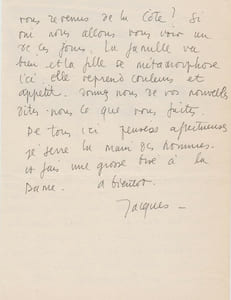 vous revenus de la Côte ? Si
oui nous allons vous voir un
de ces jours. La famille va
bien et la fille se métamorphose
ici, elle reprend couleurs et
appétit. Donnez nous de vos nouvelles
dites-nous ce que vous faites.
De tous ici pensées affectueuses
je serre la main des hommes.
et fais une grosse bise à la
Dame. à bientôt.
Jacques -